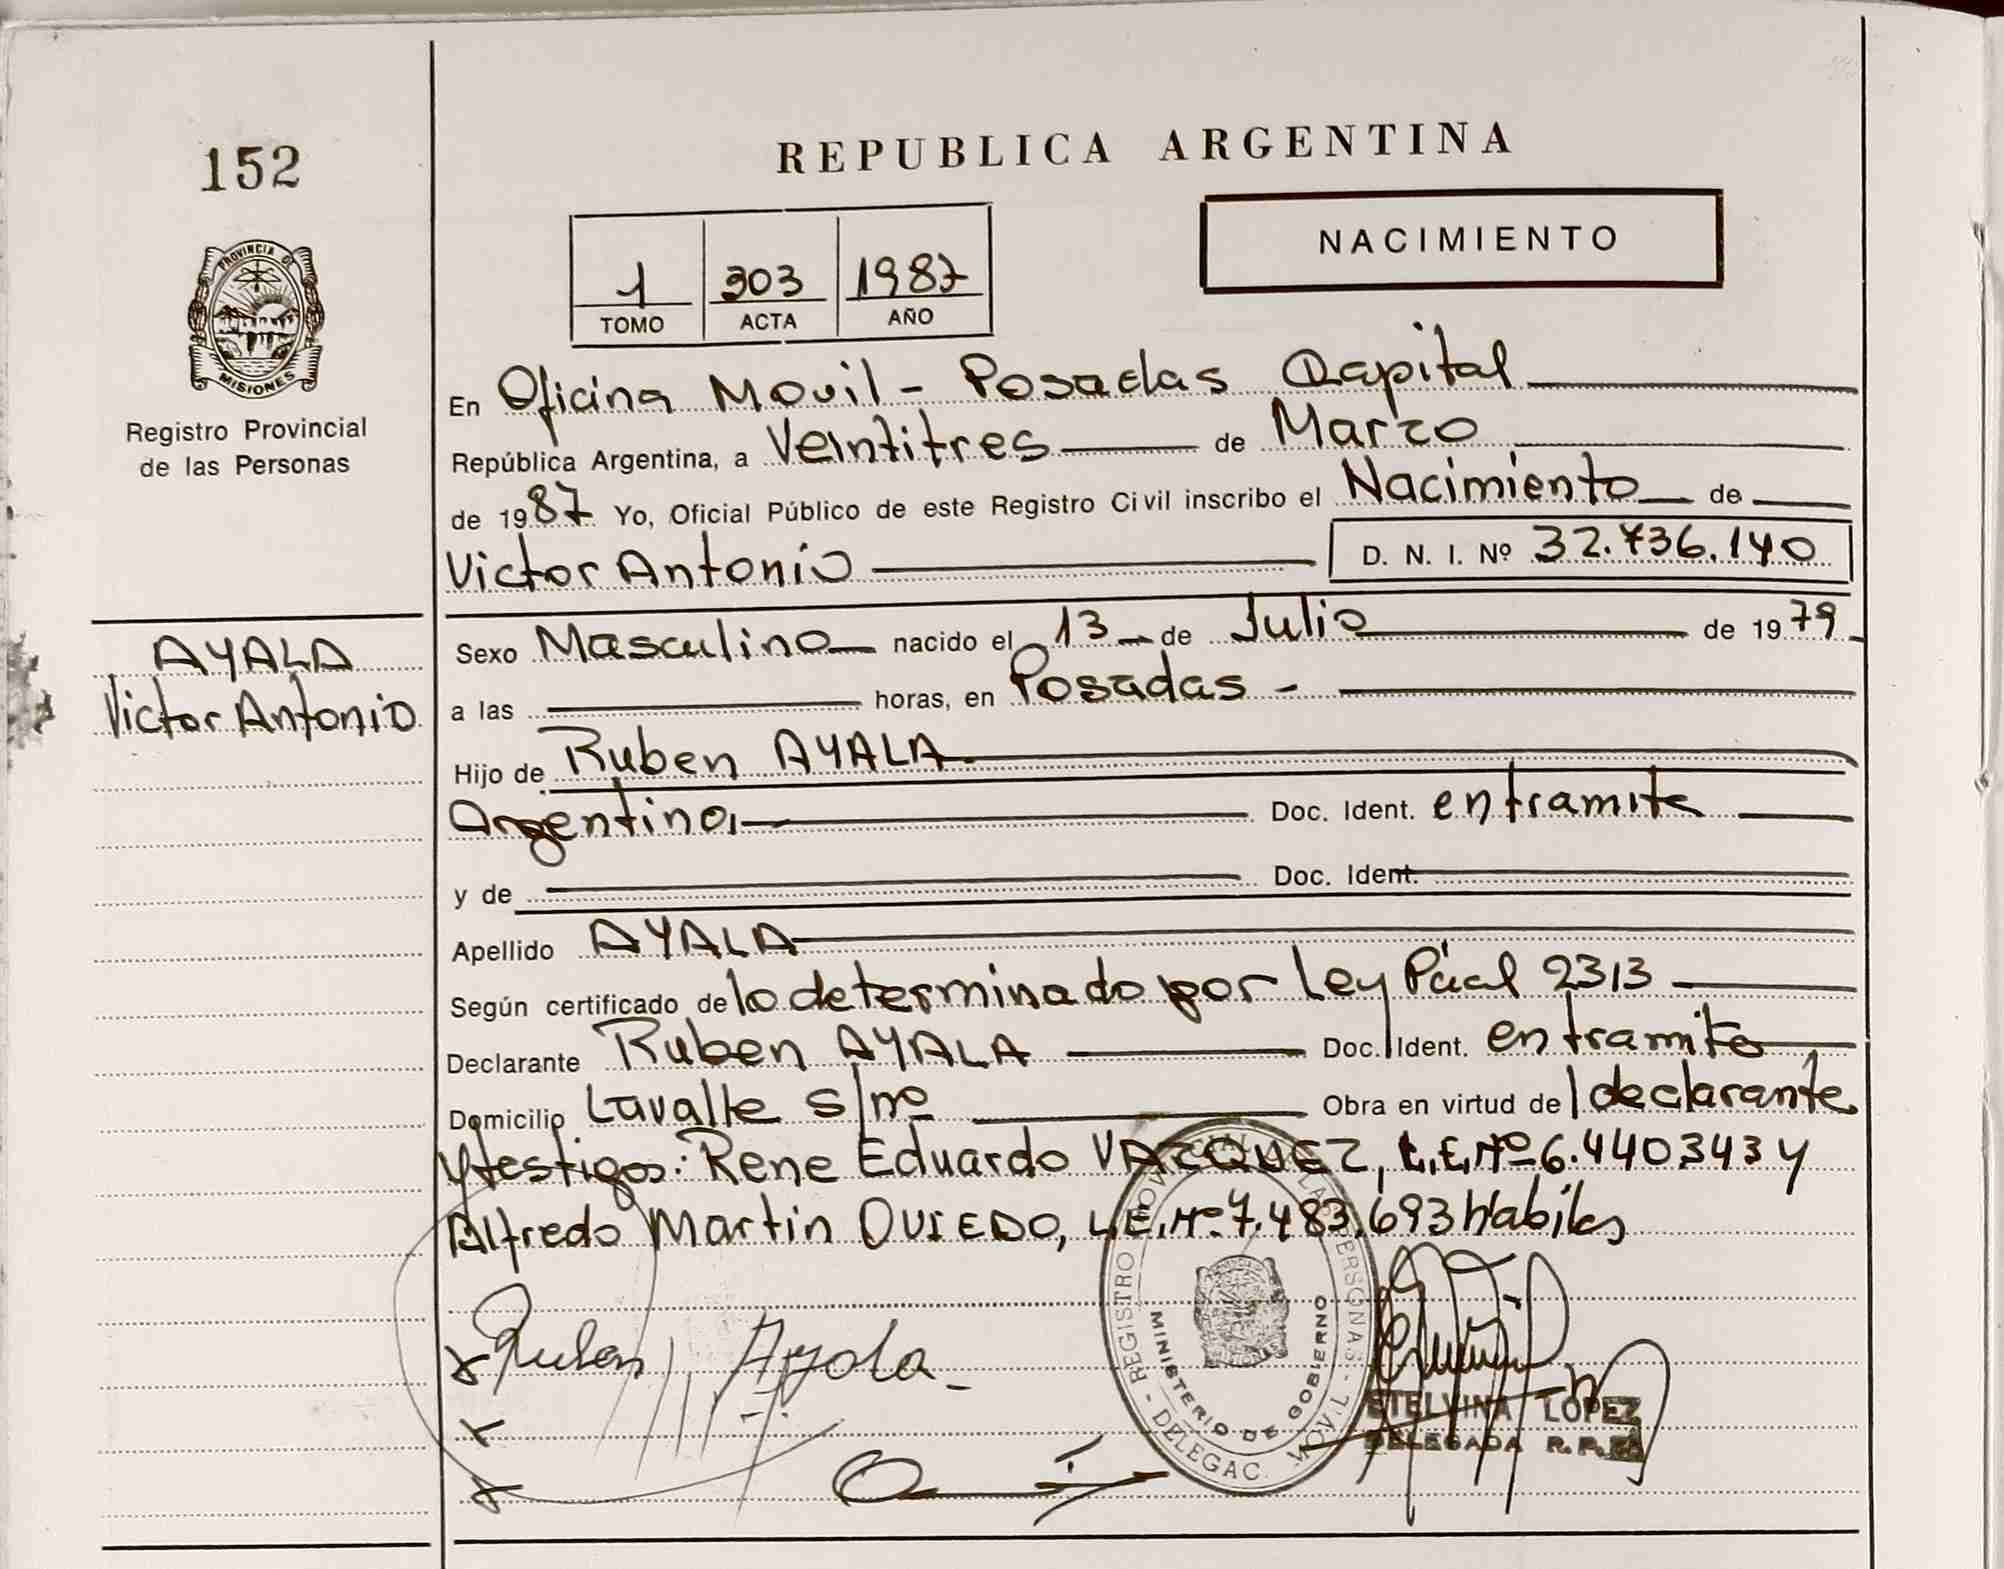 152
PROVINCIA DE
MISIONES
Registro Provincial
de las Personas
AYALA
Victor Antonio
REPUBLICA ARGENTINA
NACIMIENTO
1 303 1987
TOMO ACTA AÑO
En Oficina Movil - Posadas Capital
República Argentina, a Veintitres de Marzo
de 1987 Yo, Oficial Público de este Registro Civil inscribo el Nacimiento de
Victor Antonio D. N. I. Nº 32.736.140
Sexo Masculino nacido el 13 de Julio de 1979
a las horas, en Posadas -
Hijo de Ruben AYALA
Argentino, Doc. Ident. en tramite
y de Doc. Ident.
Apellido AYALA
Según certificado de lo determinado por Ley Pcial 2313
Declarante Ruben AYALA Doc. Ident. en tramite
Domicilio Lavalle s/nº Obra en virtud de l declarante
y testigos: Rene Eduardo VAZQUEZ, L.E.Nº 6.440343 y
Alfredo Martin OVIEDO, L.E.Nº 7.483.693 Habiles
Ruben Ayala
REGISTRO PROVINCIAL DE LAS PERSONAS - DELEGAC. MOVIL -
MINISTERIO DE GOBIERNO
STELVINA LOPEZ
DELEGADA